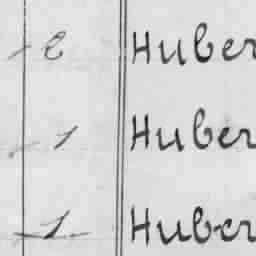 2 Huber
1 Huber
1 Huber